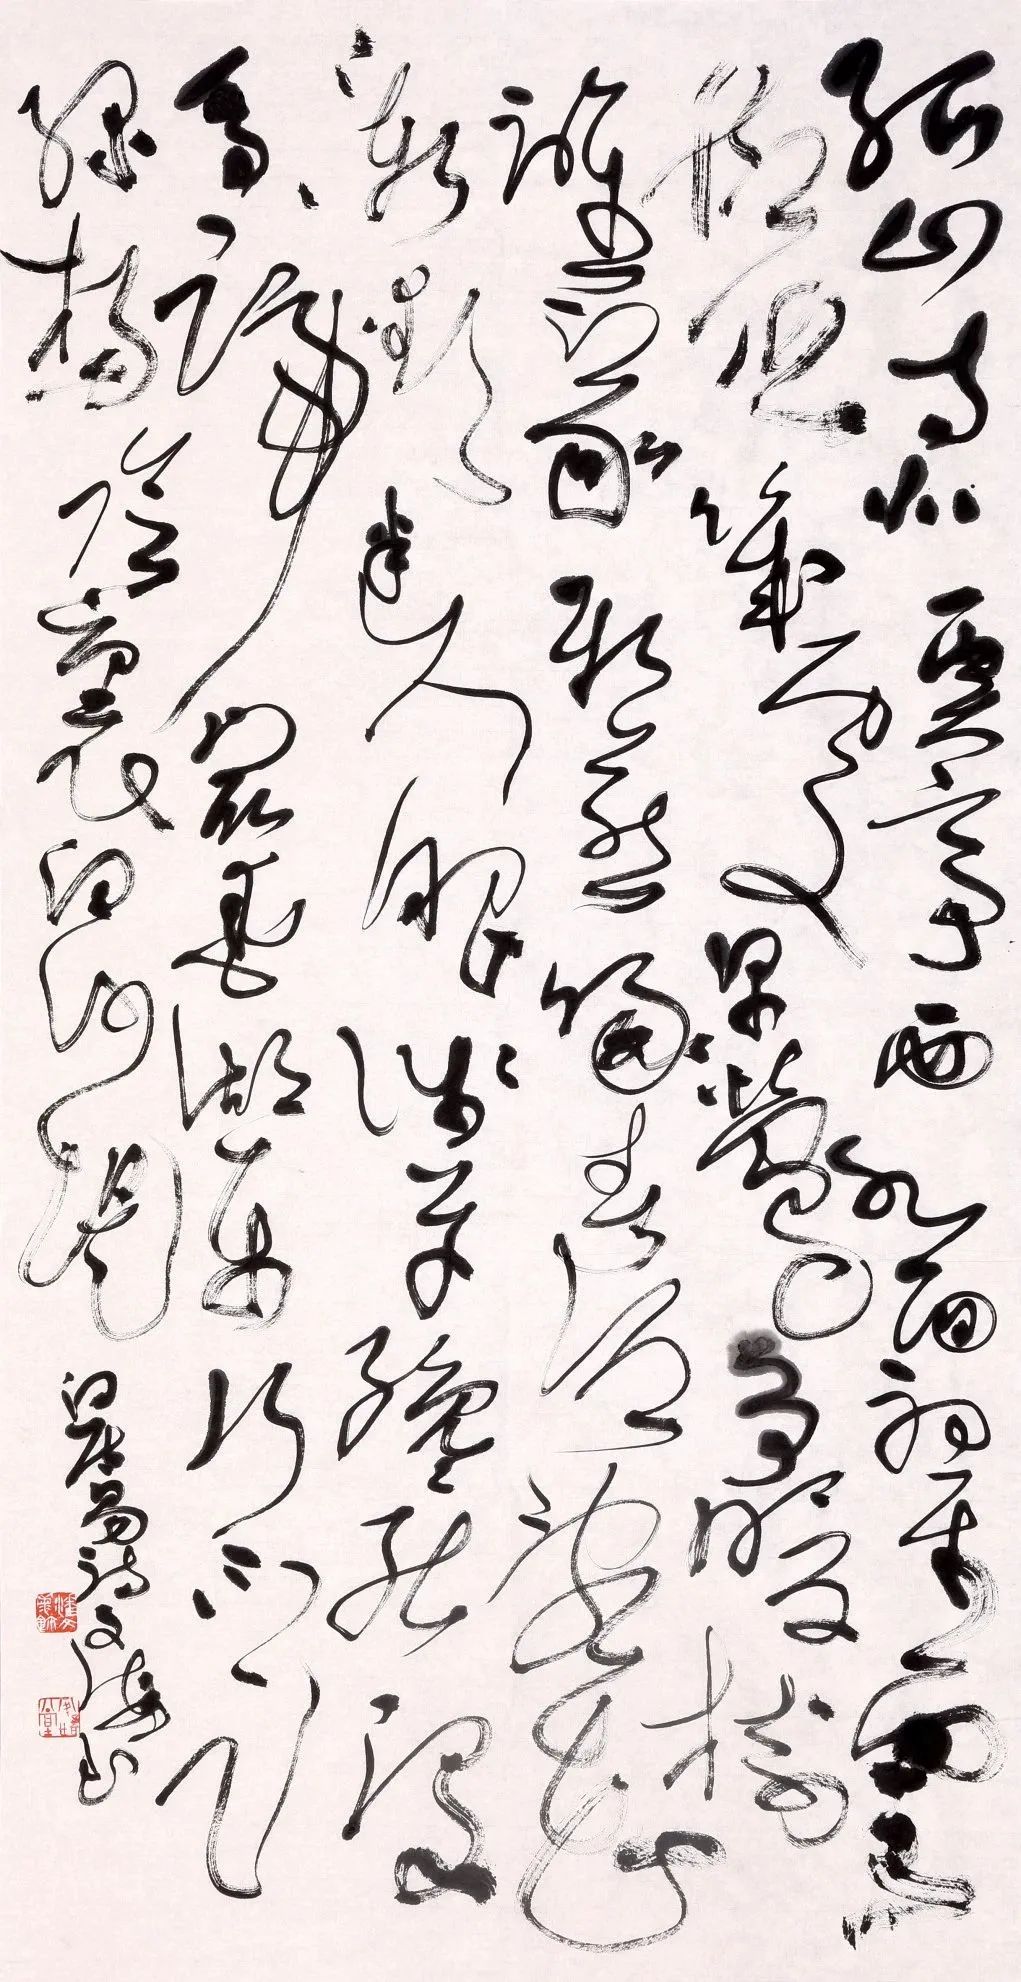 孤山寺北賈亭西水面初平雲
腳低幾處早鶯爭暖樹
誰家新燕啄春泥亂花
漸欲迷人眼淺草纔能沒
馬蹄最愛湖東行不足
綠楊陰裏白沙堤
白居易詩文海書